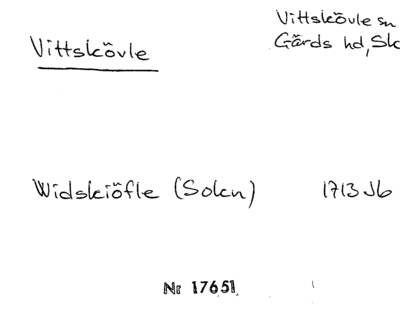 Vittskövle
Vittskövle sn
Gärds hd, Sk
Widskiöfle (Sokn)
1713 Jb
Nr 17651